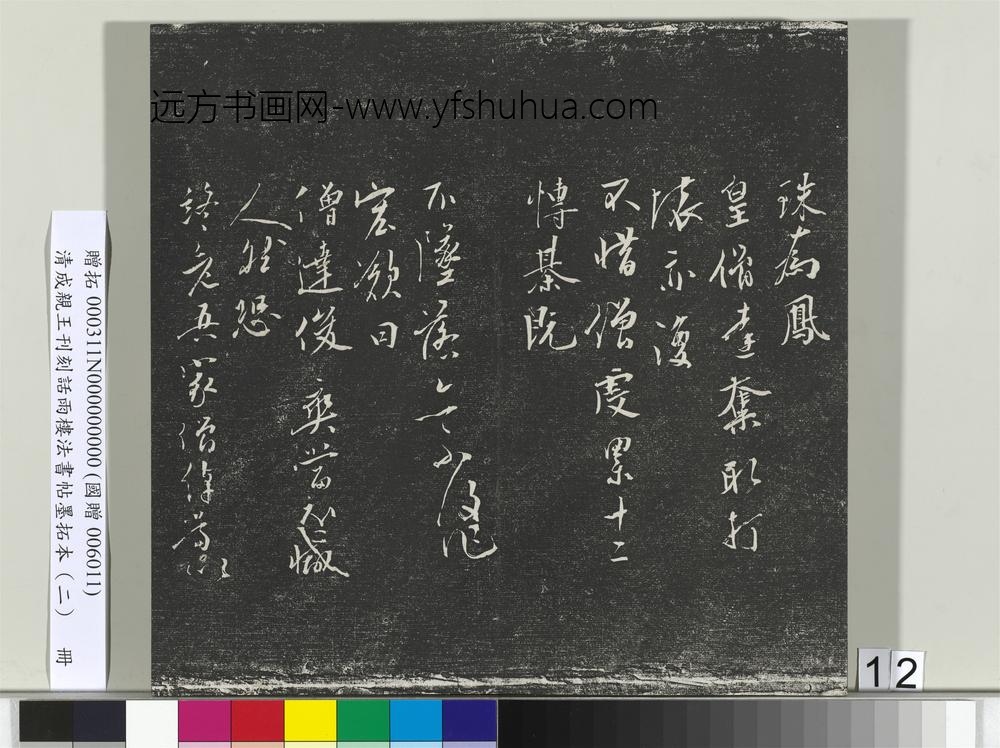 远方书画网-www.yfshuhua.com
珠為鳳
皇僧達奪取打
壞亦復
不惜僧虔累十二
博棊既
不墜落亦不復作
宏歎曰
僧達俊爽當不減
人然恐
終危吾家僧綽當以
贈拓 000311N000000000 (國贈 006011)
清成親王刊刻話雨樓法書帖墨拓本（二） 冊
12